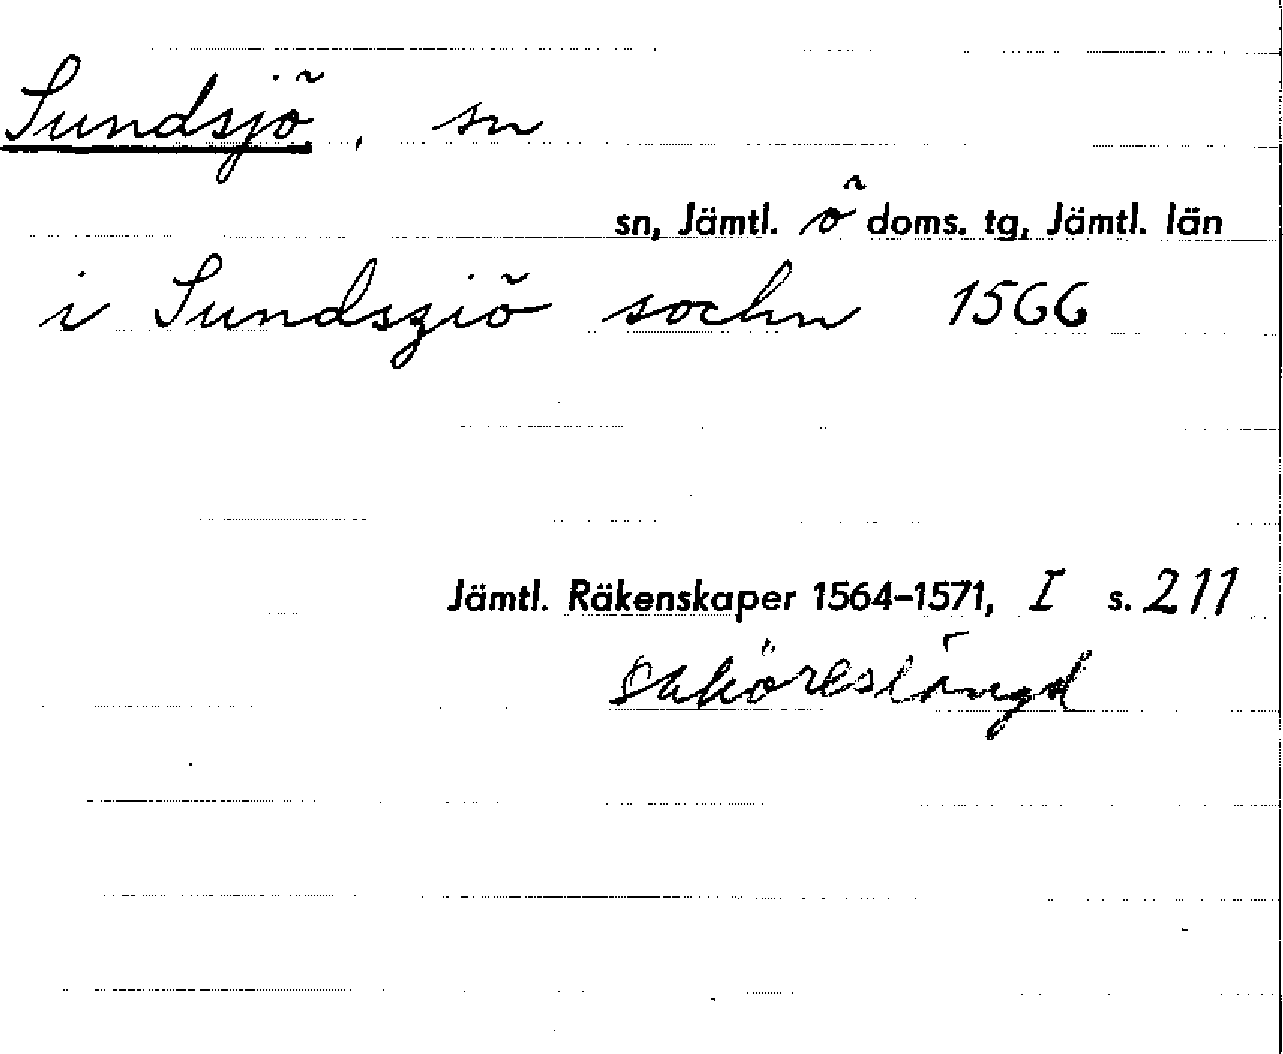 Sundsjö, sn
sn, Jämtl. ö doms. tg, Jämtl. län
i Sundsziö sochn 1566
Jämtl. Räkenskaper 1564–1571, I s. 211
saköreslängd